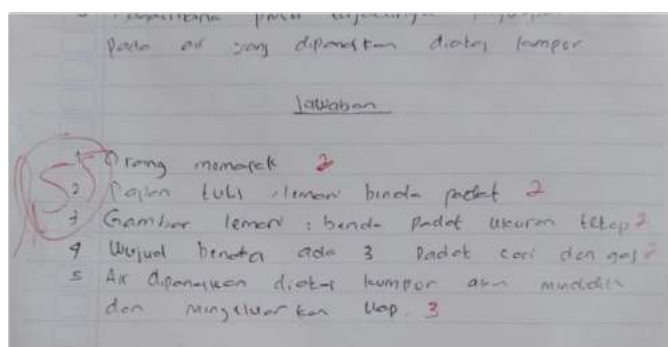 pada air yang dipanaskan diatas kompor
Jawaban
55
1 Orang memasak 2
2 Papan tulis lemari benda padat 2
3 Gambar lemari : benda padat ukuran tetap 2
4 Wujud benda ada 3 Padat cair dan gas 2
5 Air dipanaskan diatas kompor akan mendidih
dan mengeluarkan Uap. 3